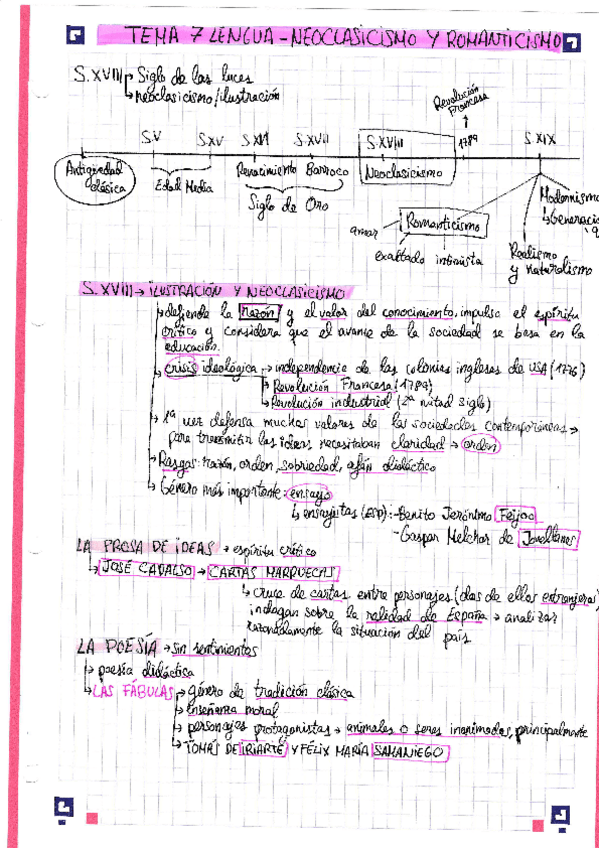 TEMA 7 LENGUA - NEOCLASICISMO Y ROMANTICISMO
S.XVIII → Siglo de las luces
→ neoclasicismo/ilustración
Revolución Francesa
S.V S.XV S.XVI S.XVII S.XVIII 1789 S.XIX
Antigüedad clásica
Edad Media
Renacimiento Barroco
Neoclasicismo
Siglo de Oro
Romanticismo
amar
exaltado intimista
Modernismo
↳ Generació
Realismo y naturalismo
S.XVIII → ILUSTRACIÓN Y NEOCLASICISMO
→ defiende la razón y el valor del conocimiento, impulsa el espíritu
crítico y considera que el avance de la sociedad se basa en la
educación.
→ crisis ideológica → independencia de las colonias inglesas de USA (1776)
→ Revolución Francesa (1789)
→ Revolución industrial (2ª mitad siglo)
→ 1ª vez defensa muchos valores de las sociedades contemporáneas →
para transmitir las ideas necesitaban claridad → orden
→ Rasgos: razón, orden, sobriedad, afán didáctico
→ Género más importante: ensayo
↳ ensayistas (ESP): - Benito Jerónimo Feijoo
- Gaspar Melchor de Jovellanos
LA PROSA DE IDEAS → espíritu crítico
↳ JOSÉ CADALSO → CARTAS MARRUECAS
↳ cruce de cartas entre personajes (dos de ellos extranjeros)
indagan sobre la realidad de España → analizar
razonadamente la situación del país
LA POESÍA → sin sentimientos
↳ poesía didáctica
↳ LAS FÁBULAS → género de tradición clásica
→ Enseñanza moral
→ personajes protagonistas → animales o seres inanimados, principalmente
→ TOMÁS DE IRIARTE Y FÉLIX MARÍA SAMANIEGO